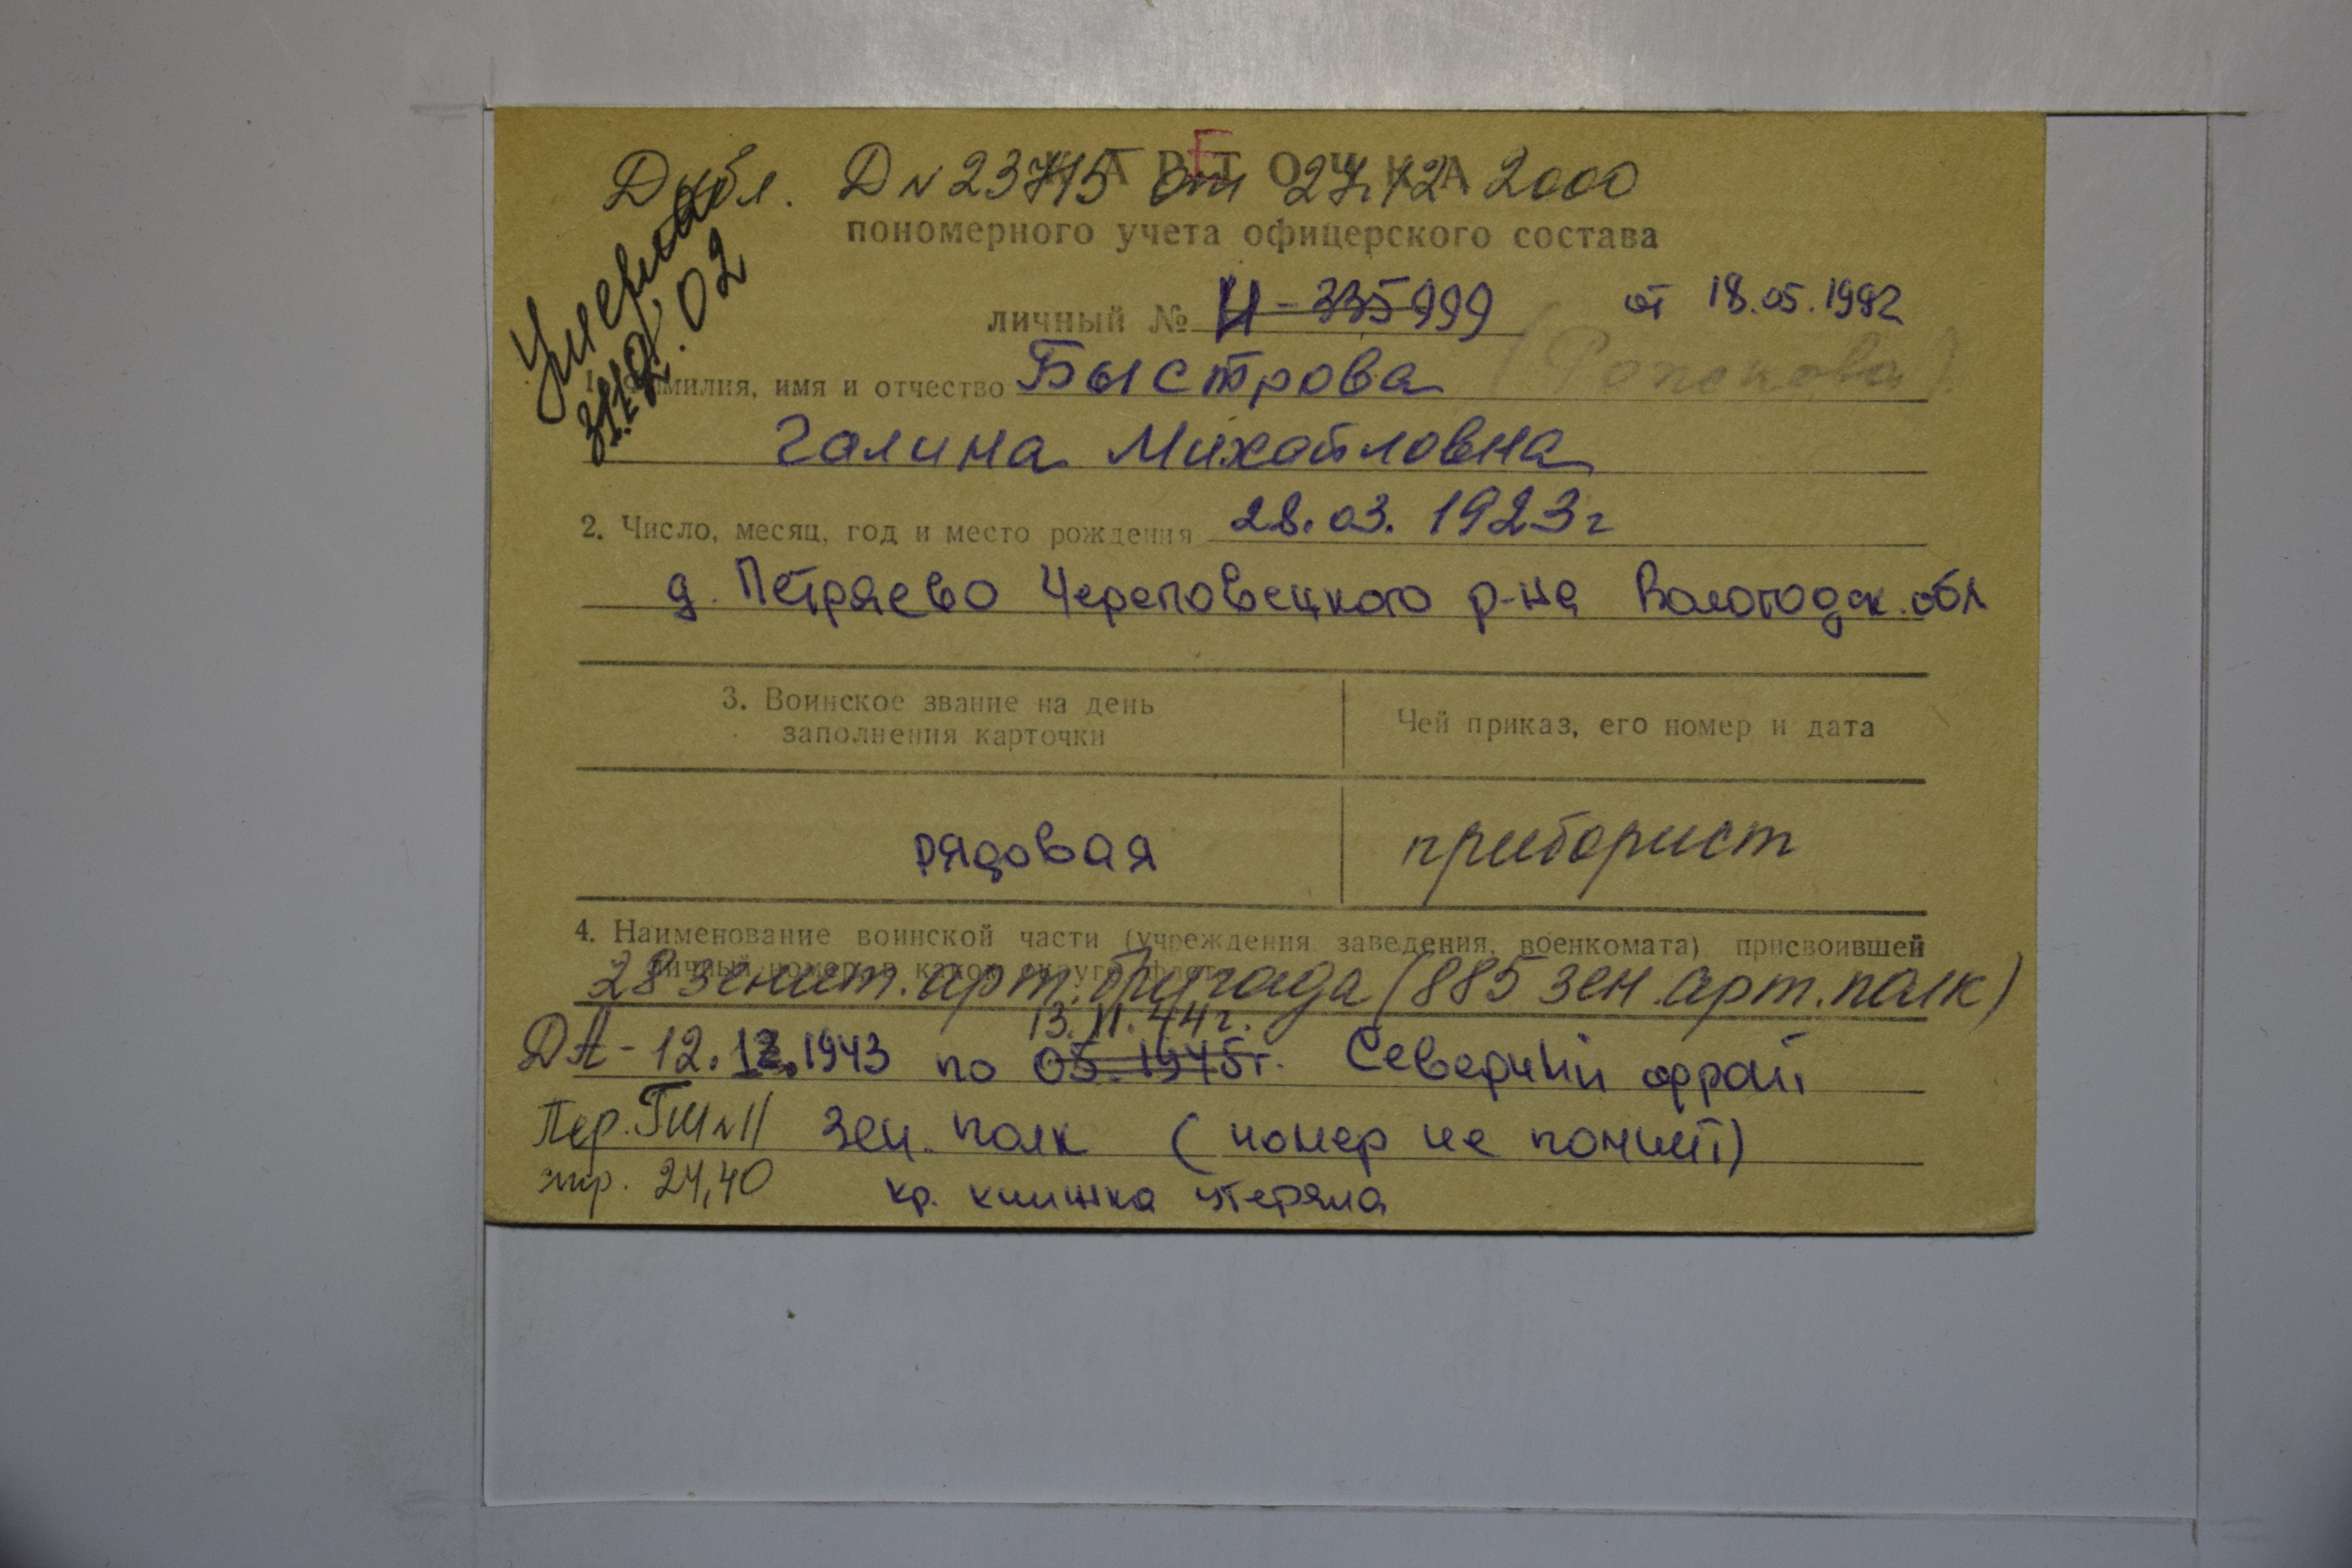 Е
КАРТОЧКА
Дубл. Д № 23715 от 27.12 2000
пономерного учета офицерского состава
Умерла
31.12.02
личный № И-335999 от 18.05.1992
1. Фамилия, имя и отчество Быстрова
Галина Михайловна
2. Число, месяц, год и место рождения 28.03.1923г
д. Петряево Череповецкого р-на Вологодск. обл
3. Воинское звание на день
заполнения карточки
Чей приказ, его номер и дата
рядовая приборист
4. Наименование воинской части (учреждения заведения, военкомата) присвоившей
личный номер, в каком округе, флоте
28 зенит. арт. бригада (885 зен. арт. полк)
13.11.44г.
ДА - 12.12.1943 по 05.1945г. Северный фронт
Пер. ГШ № 11 зен. полк (номер не помнит)
стр. 24,40 кр. книжка утеряна